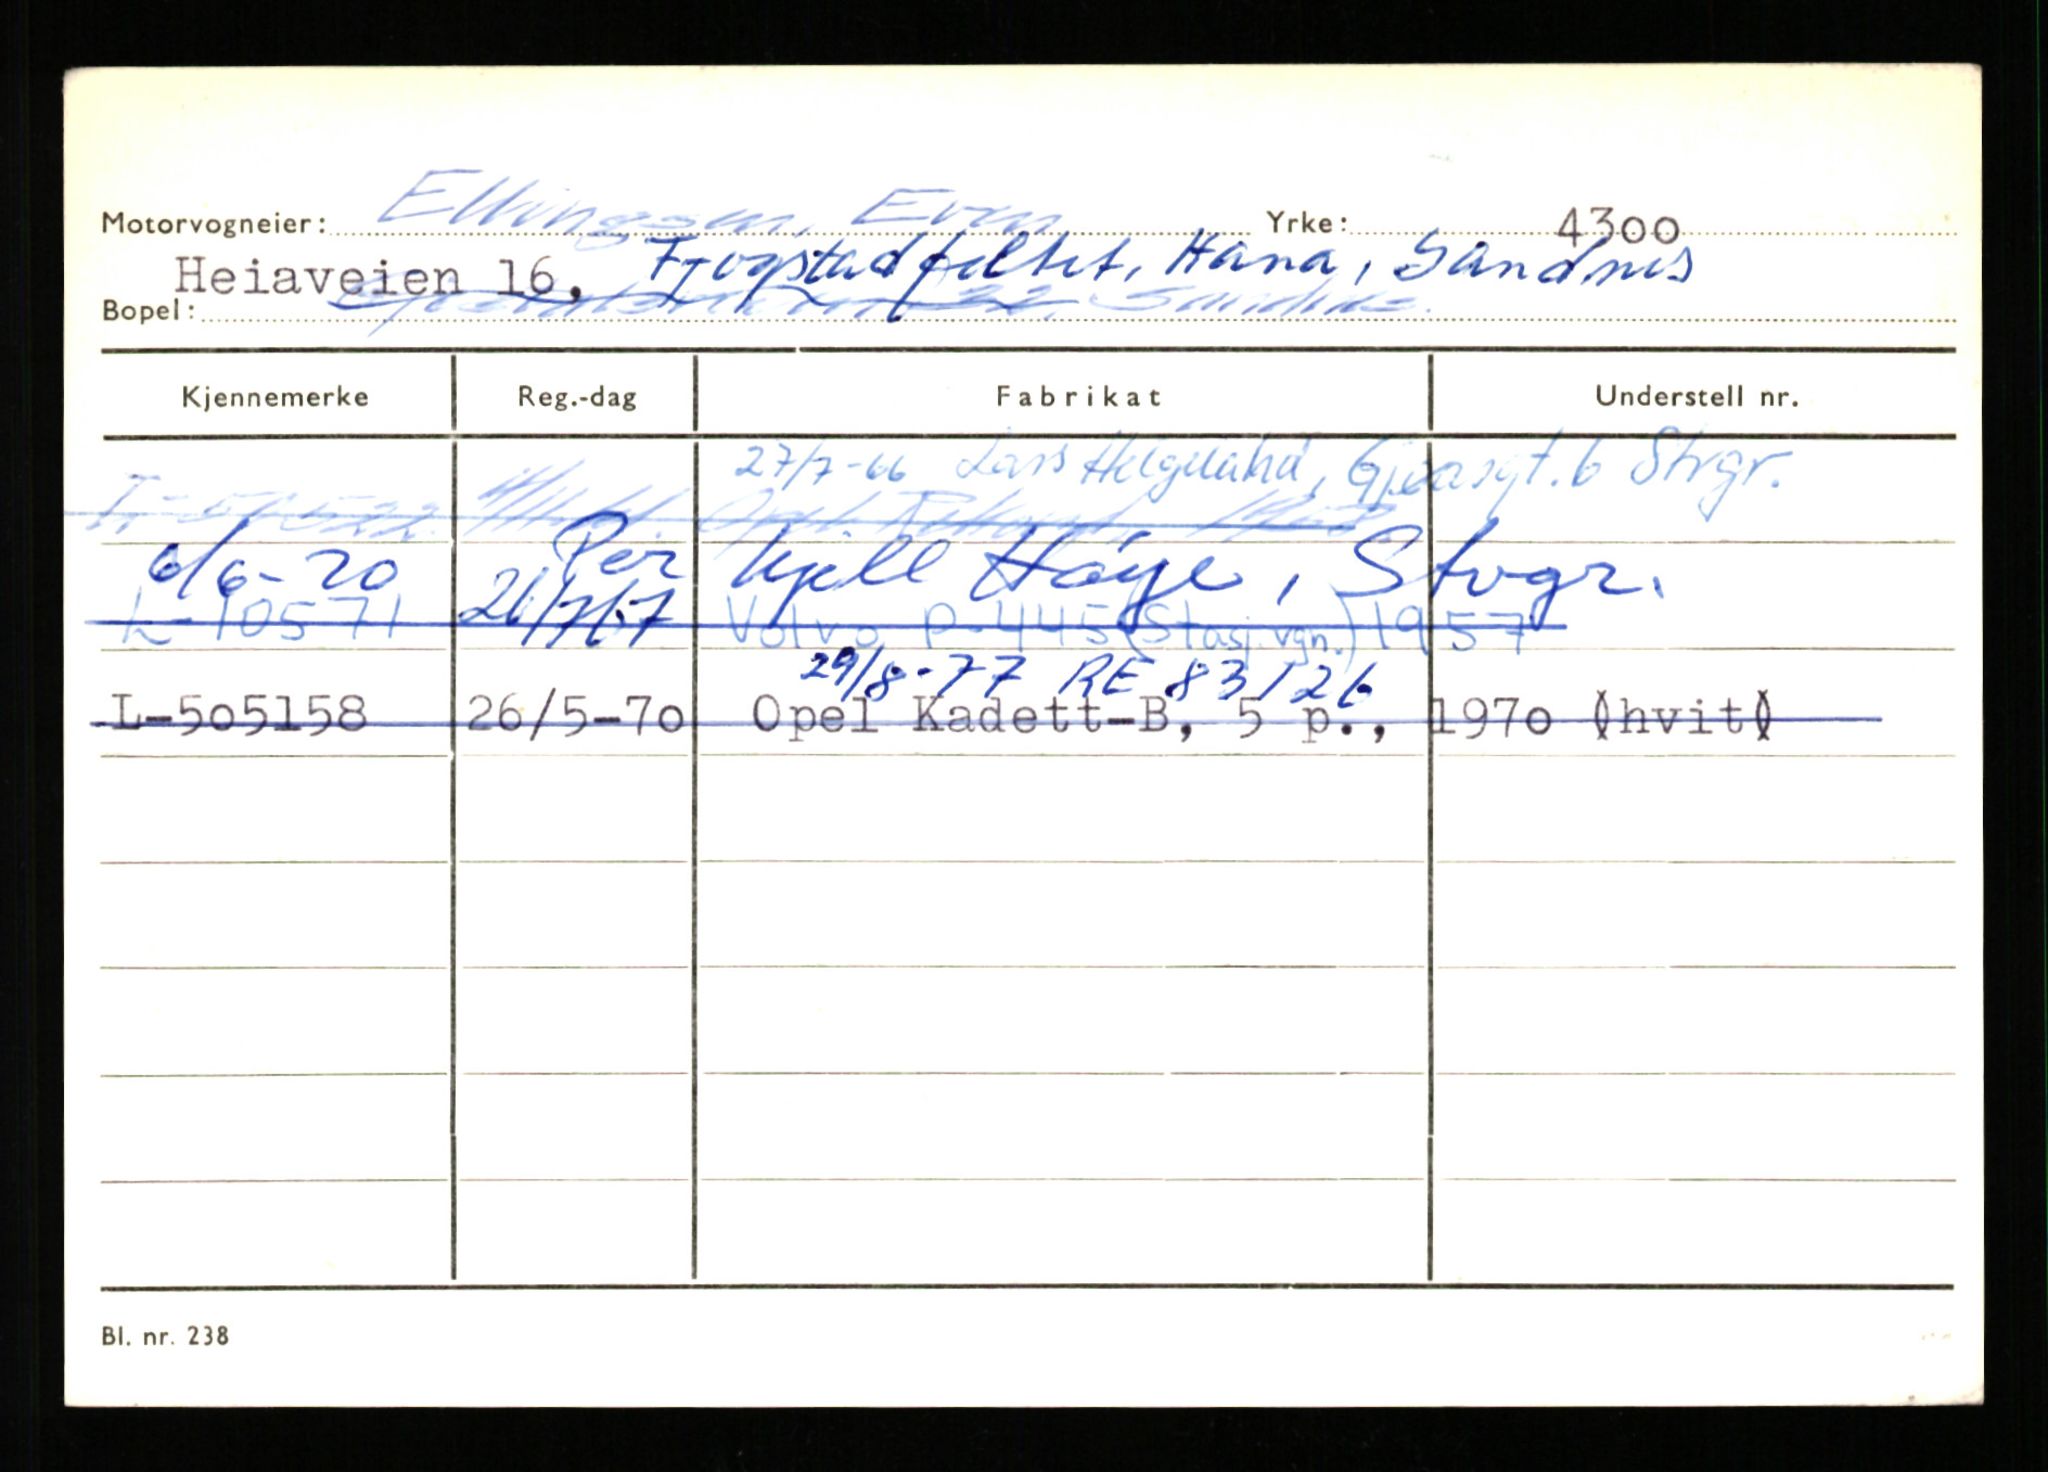 Motorvogneier: Ellingsen, Even Yrke: 4300
Heiaveien 16, Hana, Sandnes
Bopel:
Kjennemerke Reg.-dag Fabrikat Understell nr.
27/7-66 Lars Helgeland, 6 Strgr.
6/6-70 Per Kjell Høye, Stvgr.
L-10571 26/7/67 Volvo P-445 (Stasj.vgn.) 1957
29/8-77 RE 83126
L-505158 26/5-70 Opel Kadett-B, 5 p., 1970 (hvit)
Bl. nr. 238